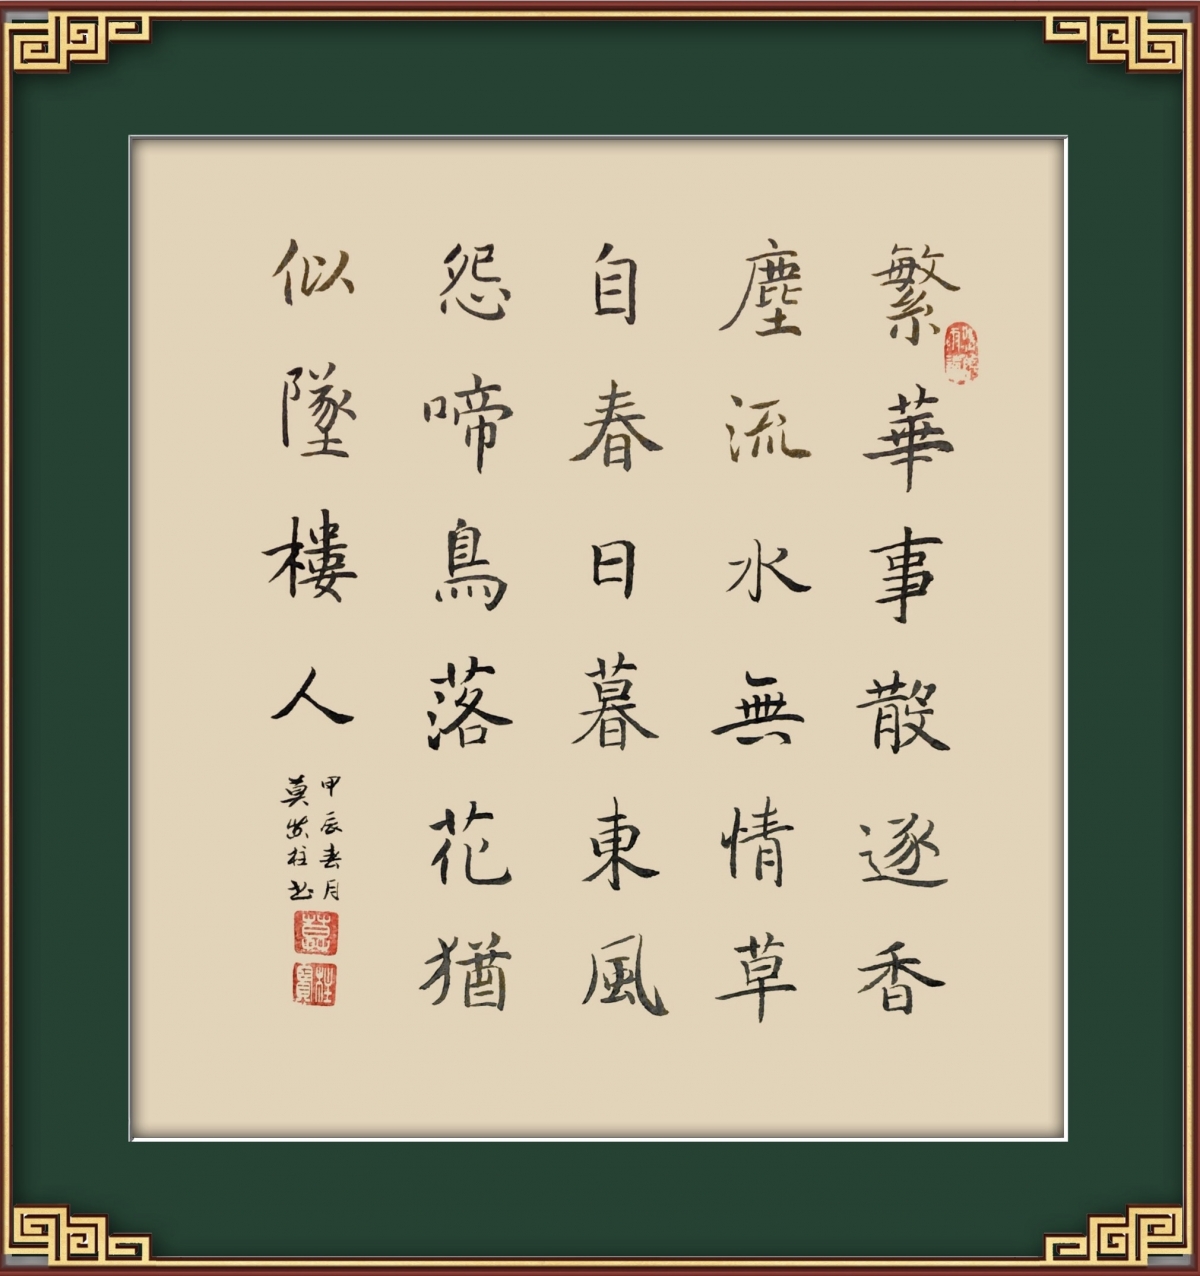 繁華事散逐香
塵流水無情草
自春日暮東風
怨啼鳥落花猶
似墜樓人
甲辰春月
莫紫柱书